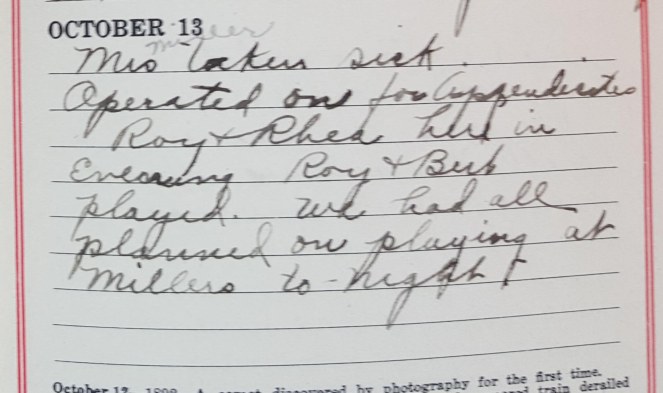 OCTOBER 13
Mrs Miller taken sick.
Operated on for Appendicites
Roy & Rhea here in
Evening Roy & Bert
played. We had all
planned on playing at
Millers to-night
October 12, 1892. A comet discovered by photography for the first time.
train derailed